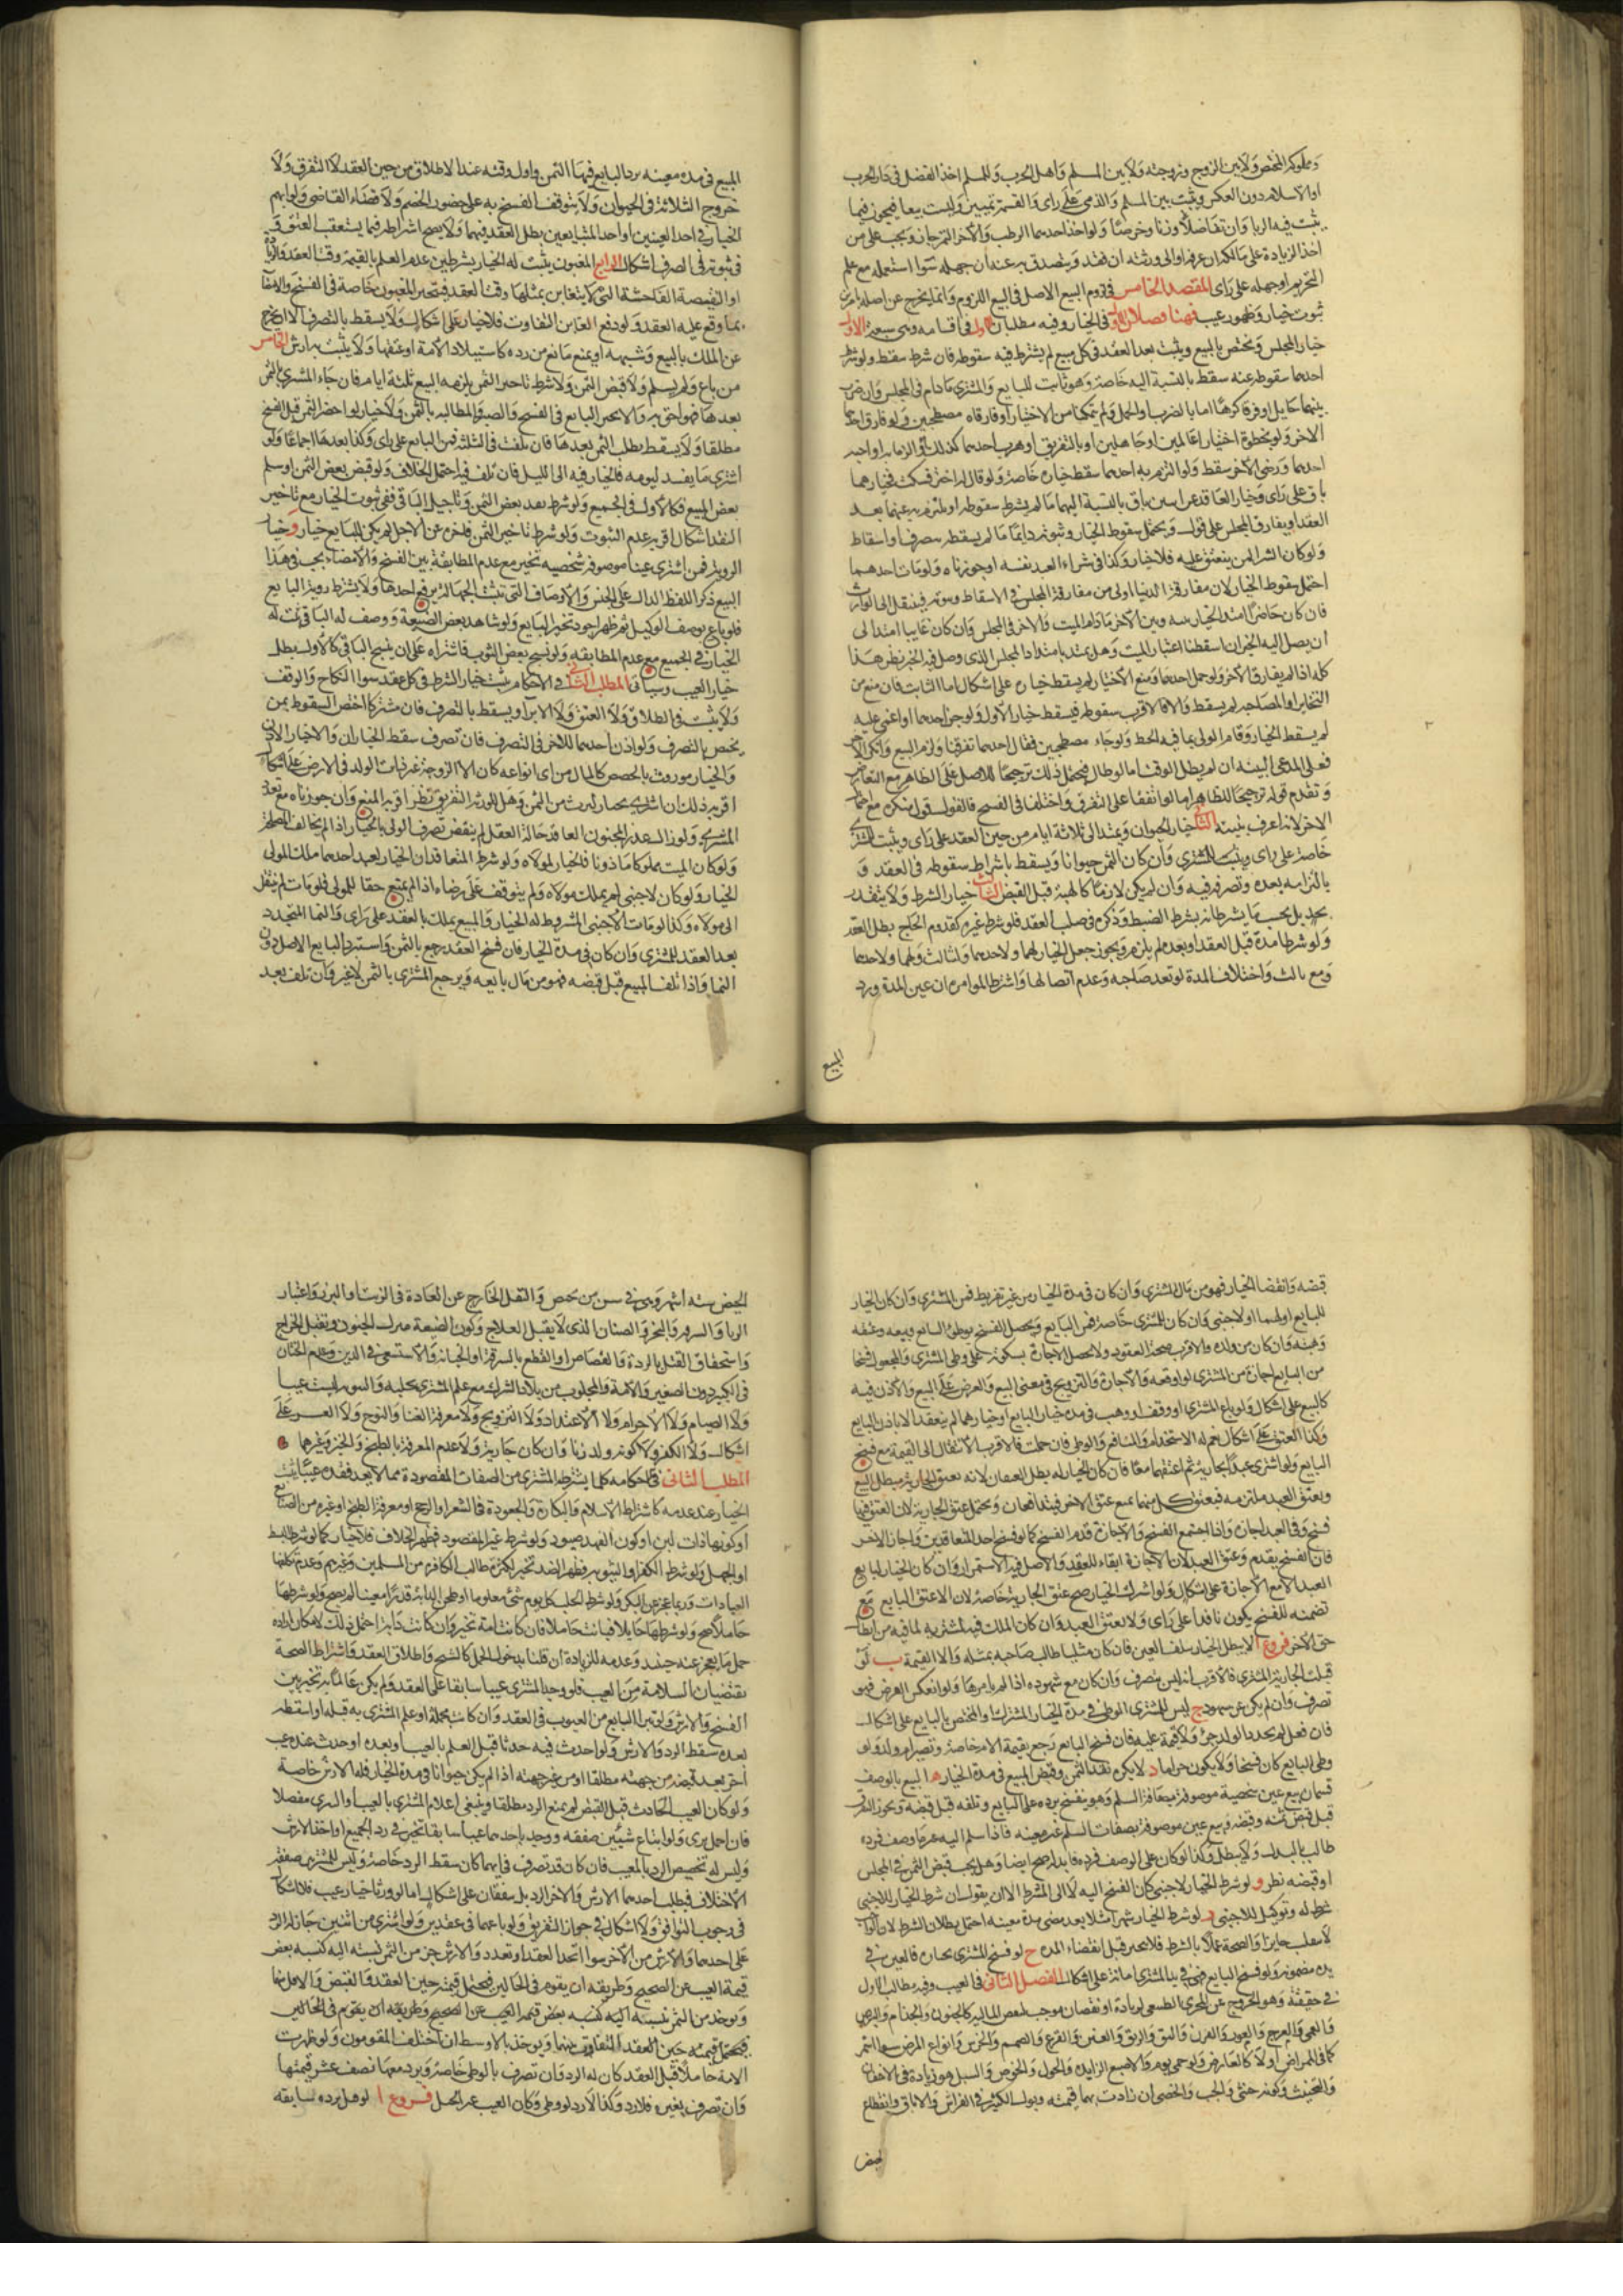 ومملوكه المختص ولا بين الزوج وزوجته ولا بين المسلم واهل الحرب وللمسلم اخذ الفضل في دار الحرب
او الاسلام دون العكس ويثبت بين المسلم والذمي على راى والقسمة تمييز وليست بيعا فيجوز فيما
يثبت فيه الربا وان تفاضلا وزنا وخرصا ولو اخذ احدهما الرطب والاخر التمر جاز ويجب على من
اخذ الزيادة على مالكه ان عرفه او الى ورثته ان فقد ويتصدق به عنه ان جهله سوا استعمله مع علم
التحريم او جهله على راى المقصد الخامس في لزوم البيع الاصل في البيع اللزوم وانما يخرج عن اصله بامرين
ثبوت خيار وظهور عيب فهنا فصلان الاول في الخيار وفيه مطلبان الاول في اقسامه وهي سبعة الاول
خيار المجلس ويختص بالبيع ويثبت بعد العقد في كل مبيع لم يشترط فيه سقوطه فان شرط سقط ولو شرط
احدهما سقوطه عنه سقط بالنسبة اليه خاصة وهو ثابت للبايع والمشتري ما دام في المجلس وان ضرب
بينهما حايل او فرقا كرها اما بالضرب او الحمل ولم يتمكنا من الاختيار او فارقاه مصطحبين ولو فارق احدهما
الاخر ولو بخطوة اختيارا عالمين او جاهلين او بالتفريق او هرب احدهما كذلك او التزما به او احد
احدهما ورضي الاخر سقط ولو التزم به احدهما سقط خياره خاصة ولو قال له اختر فسكت فخيارهما
باق على راى وخيار العاقد عن اثنين باق بالنسبة اليهما ما لم يشترط سقوطه او يلتزم به عنهما بعد
العقد او يفارق المجلس على قول ويحتمل سقوط الخيار وثبوته دايما ما لم يسقط بتصرف او اسقاط
ولو كان الشرا لمن ينعتق عليه فلا خيار وكذا في شراء العبد نفسه ان جوزناه ولو مات احدهما
احتمل سقوط الخيار لان مفارقة الدنيا اولى من مفارقة المجلس في الاسقاط وثبوته فينتقل الى الوارث
فان كان حاضرا امتد الخيار بينه وبين الاخر ما دام الميت والاخر في المجلس وان كان غايبا امتد الى
ان يصل اليه الخبر ان اسقطنا اعتبار الميت وهل يمتد بامتداد المجلس الذي وصل فيه الخبر نظر هذا
كله اذا لم يفارق الاخر ولو حمل احدهما ومنع الاختيار لم يسقط خياره على اشكال اما الثابت فان منع من
التخاير او المصاحبة لم يسقط والا فالاقرب سقوطه فيسقط خيار الاول ولو جن احدهما او اغمي عليه
لم يسقط الخيار وقام الولي بما فيه الحظ ولو جاء مصطحبين فقال احدهما تفرقنا ولزم البيع وانكر الاخر
فعلى المدعي البينة ان لم يطل الوقت اما لو طال فيحتمل ذلك ترجيحا للاصل على الظاهر مع التعارض
وتقدم قوله ترجيحا للظاهر اما لو اتفقا على التفرق واختلفا في الفسخ فالقول قول منكره مع احتمال
الاخر لانه اعرف بنيته الثاني خيار الحيوان ويمتد الى ثلاثة ايام من حين العقد على راى ويثبت للمشتري
خاصة على راى ويثبت للمشتري وان كان الثمن حيوانا ويسقط باشتراط سقوطه في العقد و
بالتزامه بعده وتصرفه فيه وان لم يكن لازما كالهبة قبل القبض الثالث خيار الشرط ولا يتقدر
بحد بل بحسب ما يشترطانه بشرط الضبط وذكره في صلب العقد فلو شرط غيره كقدوم الحاج بطل العقد
ولو شرطا مدة قبل العقد او بعده لم يلزم ويجوز جعل الخيار لهما ولاحدهما ولثالث ولهما ولاحدهما
ومع ثالث واختلاف المدة لو تعدد صاحبه وعدم اتصالها واشتراط المؤامرة ان عين المدة ورد
المبيع
المبيع في مدة معينة يرد البايع فيها الثمن واول وقته عند الاطلاق من حين العقد لا التفرق ولا
خروج الثلاثة في الحيوان ولا يتوقف الفسخ به على حضور الخصم ولا قضاء القاضي ولو ابهم
الخيار في احد العينين او احد المتبايعين بطل العقد فيهما ولا يصح اشتراطه فيما يستعقب العتق و
في ثبوته في الصرف اشكال الرابع المغبون يثبت له الخيار بشرطين عدم العلم بالقيمة وقت العقد والزيادة
او النقيصة الفاحشة التي لا يتغابن بمثلها وقت العقد فيتخير المغبون خاصة في الفسخ والامضا
بما وقع عليه العقد ولو دفع الغابن التفاوت فلا خيار على اشكال ولا يسقط بالتصرف الا ان يخرج
عن الملك بالبيع وشبهه او يمنع مانع من رده كاستيلاد الامة او عتقها ولا يثبت به ارش الخامس
من باع ولم يسلم ولا قبض الثمن ولا شرط تاخير الثمن يلزمه البيع ثلثة ايام فان جاء المشتري بالثمن
بعدها فهو احق به والا تخير البايع في الفسخ والصبر والمطالبة بالثمن ولا خيار لو احضر الثمن قبل الفسخ
مطلقا ولا يسقط بطلب الثمن بعدها فان تلفت في الثلثة فمن البايع على راى وكذا بعدها اجماعا ولو
اشترى ما يفسد ليومه فالخيار فيه الى الليل فان تلف فيه احتمل الخلاف ولو قبض بعض الثمن او سلم
بعض المبيع فكالاول في الجميع ولو شرط نقد بعض الثمن وتاجيل الباقي ففي ثبوت الخيار مع تاخير
النقد اشكال اقربه عدم الثبوت ولو شرط تاخير الثمن فاخره عن الاجل لم يكن للبايع خيار و خيار
الروية فمن اشترى عينا موصوفة شخصية تخير مع عدم المطابقة بين الفسخ والامضاء ويجب في هذا
البيع ذكر اللفظ الدال على الجنس والاوصاف التي تثبت الجهالة برفع احدها ولا يشترط روية البايع
فلو باع بوصف الوكيل ثم ظهر اجود تخير البايع ولو شاهد بعض الضيعة ووصف له الباقي ثبت له
الخيار في الجميع مع عدم المطابقة ولو نسج بعض الثوب فاشتراه على ان ينسج الباقي كالاول بطل
خيار العيب وسياتي المطلب الثاني في الاحكام يثبت خيار الشرط في كل عقد سوا النكاح والوقف
ولا يثبت في الطلاق ولا العتق ولا الابراء ويسقط بالتصرف فان شتركا اختص السقوط بمن
يختص بالتصرف ولو اذن احدهما للاخر في التصرف فان تصرف سقط الخياران والا خيار الاذن
والخيار موروث بالحصص كالمال من اى انواعه كان الا الزوجة غير ذات الولد في الارض على اشكال
اقربه ذلك ان اشترى بخيار لترث من الثمن وهل للورثة التفريق نظر اقربه المنع وان جوزناه مع تعدد
المشتري ولو زال عذر المجنون العاقد حالة العقل لم ينقض تصرف الولي بالخيار اذا لم يخالف المصلحة
ولو كان الميت مملوكا ماذونا فالخيار لمولاه ولو شرط المتعاقدان الخيار لعبد احدهما ملك المولى
الخيار ولو كان لاجنبي لم يملك مولاه ولم يتوقف على رضاه اذا لم يمنع حقا للمولى فلو مات لم ينتقل
الى مولاه وكذا لو مات الاجنبي المشروط له الخيار والمبيع يملك بالعقد على راى والنما المتجدد
بعد العقد للمشتري وان كان في مدة الخيار فان فسخ العقد رجع بالثمن واسترد البايع الاصل دون
النما واذا تلف المبيع قبل قبضه فهو من مال بايعه ويرجع المشتري بالثمن لا غير وان تلف بعد
قبضه وانقضا الخيار فهو من مال المشتري وان كان في مدة الخيار من غير تفريط فمن المشتري وان كان الخيار
للبايع او لهما او لاجنبي وان كان للمشتري خاصة فمن البايع ويحصل الفسخ بوطئ البايع وبيعه وعتقه
وهبته وان كان من ولده والاقرب صحة العقود ولا يحصل الاجازة بسكوته على وطئ المشتري والمجعول فسخا
من البايع اجازة من المشتري لو اوقعه والاجارة والتزويج في معنى البيع والعرض على البيع والاذن فيه
كالبيع على اشكال ولو باع المشتري او وقف او وهب في مدة خيار البايع او خيارهما لم ينعقد الا باذن البايع
وكذا العتق على اشكال نعم له الاستخدام والمنافع والوطئ فان حملت فالاقرب الانتقال الى القيمة مع فسخ
البايع ولو اشترى عبدا بجارية ثم اعتقهما معا فان كان الخيار له بطل العتقان لانه بعتق الجارية مبطل للبيع
وبعتق العبد ملتزم به فبعتق كل منهما يمنع عتق الاخر فيتدافعان ويحتمل عتق الجارية لان العتق فيها
فسخ وفي العبد اجازة واذا اجتمع الفسخ والاجازة قدم الفسخ كما لو فسخ احد المتعاقدين واجاز الاخر
فان الفسخ يقدم وعتق العبد لان الاجازة ابقاء للعقد والاصل فيه الاستمرار وان كان الخيار لبايع
العبد الا مع الاجازة على اشكال ولو اشترك الخيار صح عتق الجارية خاصة لان الاعتق البايع مع
تضمنه للفسخ يكون نافذا على راى ولا يعتق العبد وان كان الملك فيه لمشتريه لما فيه من ابطال
حق الاخر فروع ا لا يبطل الخيار بتلف العين فان كان مثليا طالب صاحبه بمثله والا القيمة ب لو
قبلت الجارية المشتري فالاقرب انه ليس بتصرف وان كان مع شهوته اذا لم يامرها ولو انعكس الفرض فهو
تصرف وان لم يكن عن شهوة ج ليس للمشتري الوطئ في مدة الخيار المشترك او المختص بالبايع على اشكال
فان فعل لم يحد والولد حر ولا قيمة عليه فان فسخ البايع رجع بقيمة الام خاصة وتصير ام ولد ولو
وطئ البايع كان فسخا ولا يكون حراما د لا يكره نقد الثمن وقبض المبيع في مدة الخيار ه البيع بالوصف
قسمان بيع عين شخصية موصوفة بصفات السلم وهو ينفسخ برده على البايع وتلفه قبل قبضه ويجوز التفرق
قبل قبض ثمنه وقبضه وبيع عين موصوفة بصفات السلم غير معينة فاذا سلم اليه غير ما وصف فرده
طالب بالبدل ولا يبطل وكذا لو كان على الوصف فرده فابدله صح ايضا وهل يجب قبض الثمن في المجلس
او قبضه نظر و لو شرط الخيار لاجنبي كان الفسخ اليه لا الى المشترط الا ان يقول ان شرط الخيار للاجنبي
شرط له وتوكيل للاجنبي ز لو شرط الخيار شهرا مثلا بعد مضي مدة معينة احتمل بطلان الشرط لان الواجب
لا ينقلب جايزا والصحة عملا بالشرط فلا يتخير قبل انقضاء المدة ح لو فسخ المشتري بخياره فالعين في
يده مضمونة ولو فسخ البايع فهي في يد المشتري امانة على اشكال الفصل الثاني في العيب وفيه مطالب الاول
في حقيقته وهو الخروج عن المجرى الطبيعي لزيادة او نقصان موجب لنقص المالية كالجنون والجذام والبرص
والعمى والعرج والعور والقرن والفتق والرتق والعنن والقرع والصمم والخرس وانواع المرض سوا استمر
كما في الممراض او لا كالعارض ولو حمى يوم والاصبع الزايدة والحول والخوص والسبل هو زيادة في الاجفان
والتخنيث وكونه خنثى والجب والخصي ان زادت بهما قيمته وبول الكبير في الفراش والاباق وانقطاع
الحيض
الحيض ستة اشهر وهي في سن من تحيض والثفل الخارج عن العادة في الزيت او البزر واعتبار
الزنا والسرقة والبخر والصنان الذي لا يقبل العلاج وكون الضيعة منزل الجنود وثقيل الخراج
واستحقاق القتل بالردة والقصاص او القطع بالسرقة او الجناية والاستسعى في الدين وعدم الختان
في الكبير دون الصغير والامة والمجلوب من بلاد الشرك مع علم المشتري بجلبه والثيوبة ليست عيبا
ولا الصيام ولا الاحرام ولا الاعتداد ولا التزويج ولا معرفة الغنا والنوح ولا العسر على
اشكال ولا الكفر ولا كونه ولد زنا وان كان جارية ولا عدم المعرفة بالطبخ والخبز وغيرهما
المطلب الثاني في احكامه كلما يشترطه المشتري من الصفات المقصودة مما لا يعد فقده عيبا يثبت
الخيار عند عدمه كاشتراط الاسلام والبكارة والجعودة في الشعر او الزجج او معرفة الطبخ او غيره من الصنايع
او كونها ذات لبن او كون الفهد صيود ولو شرط غير المقصود فظهر الخلاف فلا خيار كما لو شرط السبط
او الجهل ولو شرط الكفر او الثيوبة فظهر الضد تخير لكثرة طالب الكافر من المسلمين وغيرهم وعدم تكليفها
العبادات وربما عجز عن البكر ولو شرط الحلب كل يوم شئ معلوما او طحن الدابة قدرا معينا لم يصح ولو شرطها
حاملا صح ولو شرطها حايلا فبانت حاملا فان كانت امة تخير وان كانت دابة احتمل ذلك لامكان ارادة
حمل ما يعجز عنه حينئذ وعدمه للزيادة ان قلنا بدخول الحمل كالشيخ واطلاق العقد واشتراط الصحة
يقتضيان السلامة من العيب فلو وجد المشتري عيبا سابقا على العقد ولم يكن عالما به تخير بين
الفسخ والارش ولو تبرا البايع من العيوب في العقد وان كانت مجملة او علم المشتري به قبله او اسقطه
بعده سقط الرد والارش ولو احدث فيه حدثا قبل العلم بالعيب او بعده او حدث عنده عيب
اخر بعد قبضه من جهته مطلقا او من غير جهته اذا لم يكن حيوانا في مدة الخيار فله الارش خاصة
ولو كان العيب الحادث قبل القبض لم يمنع الرد مطلقا وينبغي اعلام المشتري بالعيب او التبري مفصلا
فان اجمل برى ولو ابتاع شيئين صفقة ووجد باحدهما عيبا سابقا تخير في رد الجميع او اخذ الارش
وليس له تخصيص الرد بالمعيب فان كان قد تصرف في ايهما كان سقط الرد خاصة وليس للمشتريين صفقة
الاختلاف فيطلب احدهما الارش والاخر الرد بل يتفقان على اشكال اما لو ورثا خيار عيب فلا اشكال
في وجوب التوافق ولا اشكال في جواز التفريق لو باعهما في عقدين ولو اشترى من اثنين جاز له الرد
على احدهما والارش من الاخر سوا اتحد العقد او تعدد والارش جزء من الثمن نسبته اليه كنسبة نقص
قيمة العيب عن الصحيح وطريقه ان يقوم في الحالين فيحتمل قيمته حين العقد والقبض والاقل منهما
ويوخذ من الثمن بنسبته اليه كنسبة نقص قيمة المعيب عن الصحيح وطريقه ان يقوم في الحالين
فيحتمل قيمته حين العقد التفاوت بينهما ويوخذ بالاوسط ان اختلف المقومون ولو ظهرت
الامة حاملا قبل العقد كان له الرد وان تصرف بالوطئ خاصة ويرد معها نصف عشر قيمتها
وان تصرف بغيره فلا رد وكذا لا رد لو وطئ وكان العيب غير الحمل فروع ا لو حمل برده سابقه